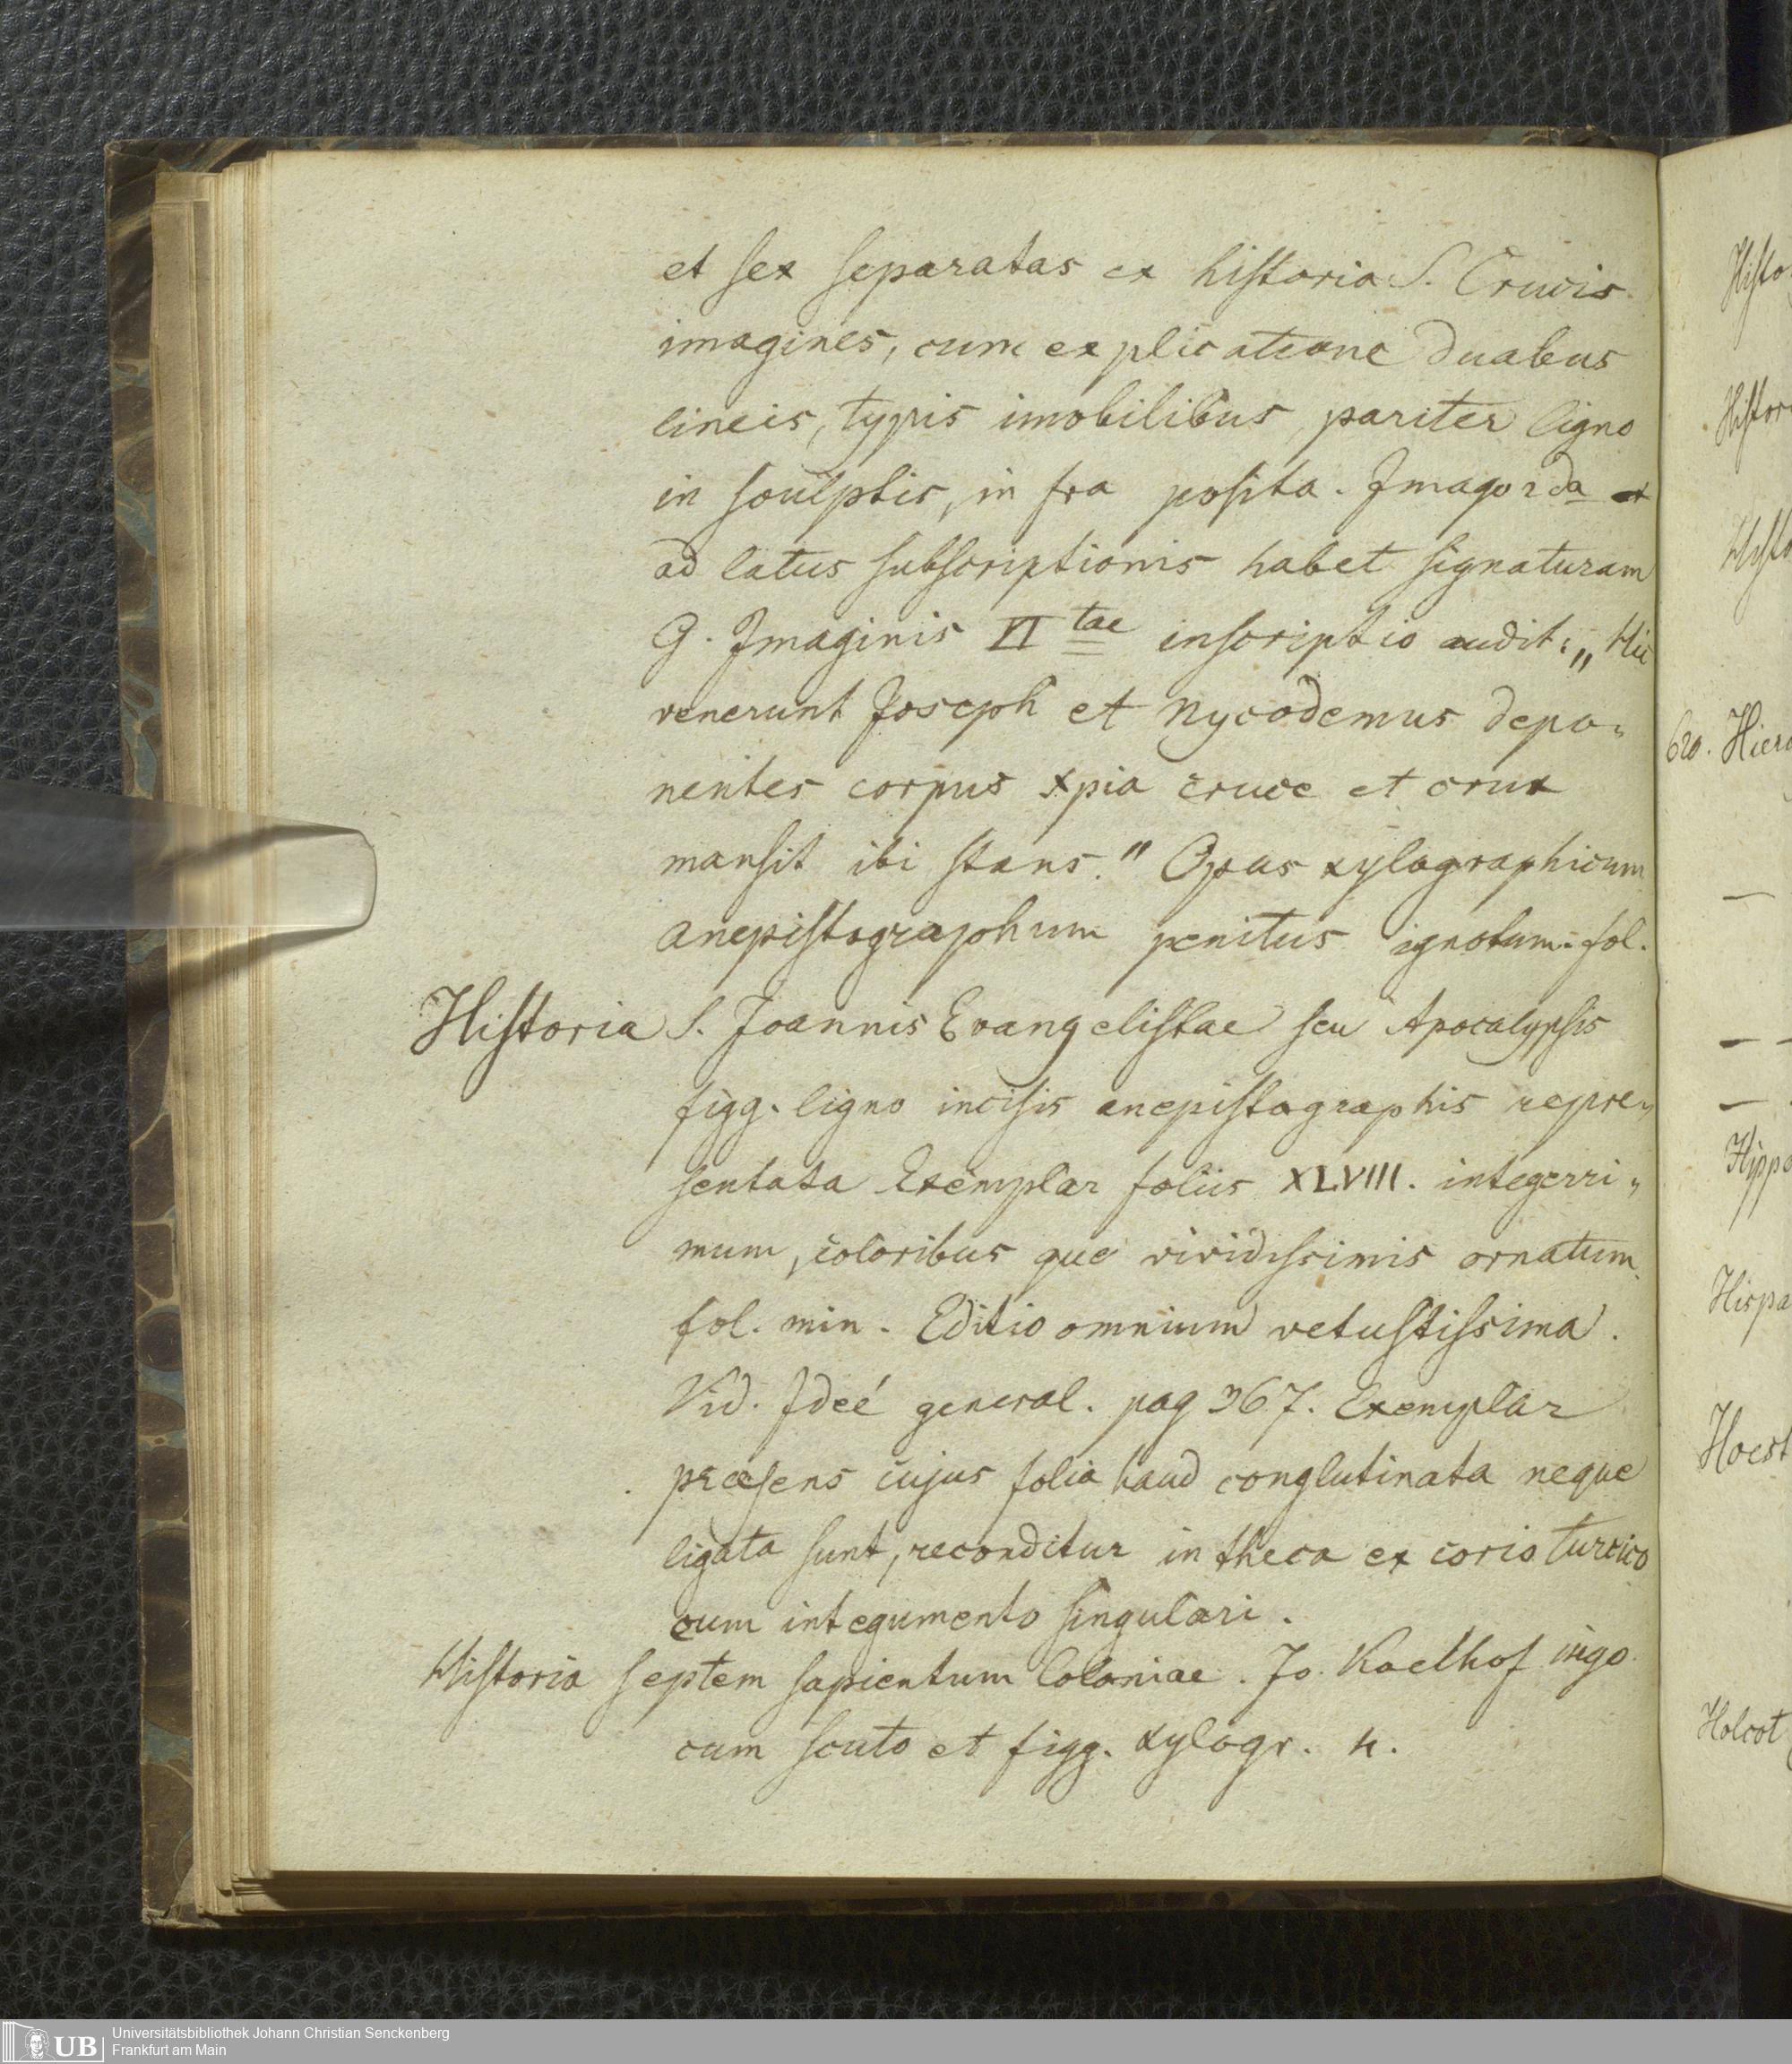 et sex separatas ex historia S. Crucis
imagines, cum explicatione duabus
lineis, typis imobilibus, pariter ligno
in sculptis, in fra posita. Imago 2da et
ad latus subscriptionis habet signaturam
G. Imaginis VI tae inscriptio audit: „Hii
venerunt Joseph et Nycodemus depo„
nentes corpus xpia cruce et crux
mansit ibi stans." Opus xylographicum
anepistographum penitus ignotum. fol.
Historia S. Joannis Evangelistae seu Apocalypsis
figg. ligno incisis anepistographis repre„
sentata Exemplar foliis XLVIII. integerri„
mum, coloribus que vividissimis ornatum.
fol. min. Editio omnium vetustissima.
Vid. Ideé general. pag 367. Exemplar
praesens cujus folia haud conglutinata neque
ligata sunt, reconditur in theca ex corio turcico
cum integumento singulari.
Historia septem sapientum Coloniae. Jo. Koelhof
cum scuto et figg. xylogr. 4.
Histo
Histor
Histo
620. Hiero
—
—
—
Hippo
Hispa
Hoest
Holcot
UB
Universitätsbibliothek Johann Christian Senckenberg
Frankfurt am Main